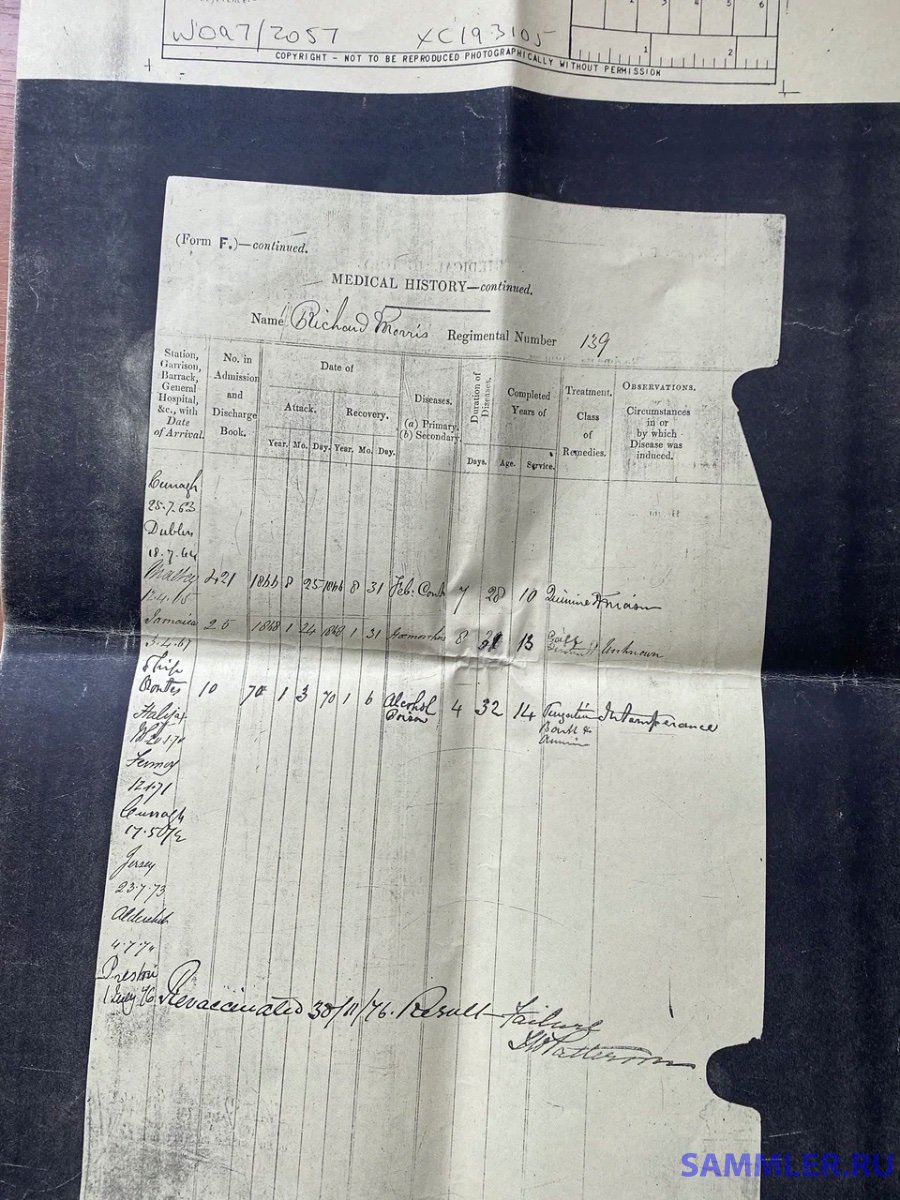 WO97/2057 XC19.3105
1 2 3 4 5 6
1 2
COPYRIGHT - NOT TO BE REPRODUCED PHOTOGRAPHICALLY WITHOUT PERMISSION
(Form F.)—continued.
MEDICAL HISTORY—continued.
Name Richard Morris Regimental Number 139
Station, Garrison, Barrack, General Hospital, &c., with Date of Arrival.
No. in Admission and Discharge Book.
Date of
Attack. Recovery.
Year. Mo. Day. Year. Mo. Day.
Diseases.
(a) Primary.
(b) Secondary.
Duration of Diseases.
Days.
Completed Years of
Age. Service.
Treatment. Class of Remedies.
OBSERVATIONS.
Circumstances in or by which Disease was induced.
Curragh
25.7.63
Dublin
18.7.64
Malta 421 1866 8 25 1866 8 31 Feb: Cont 7 28 10 Quinine
Jamaica 25 1868 1 24 1868 1 31 8 31 13 Unknown
3.4.67
Ship
Orontes 10 70 1 3 70 1 6 Alcohol Poison 4 32 14 Intemperance
Halifax
Fermoy
12.1.71
Curragh
Jersey
23.7.73
Aldershot
4.7.74
Preston
Revaccinated 30/11/76. Result Failure
Patterson
SAMMLER.RU